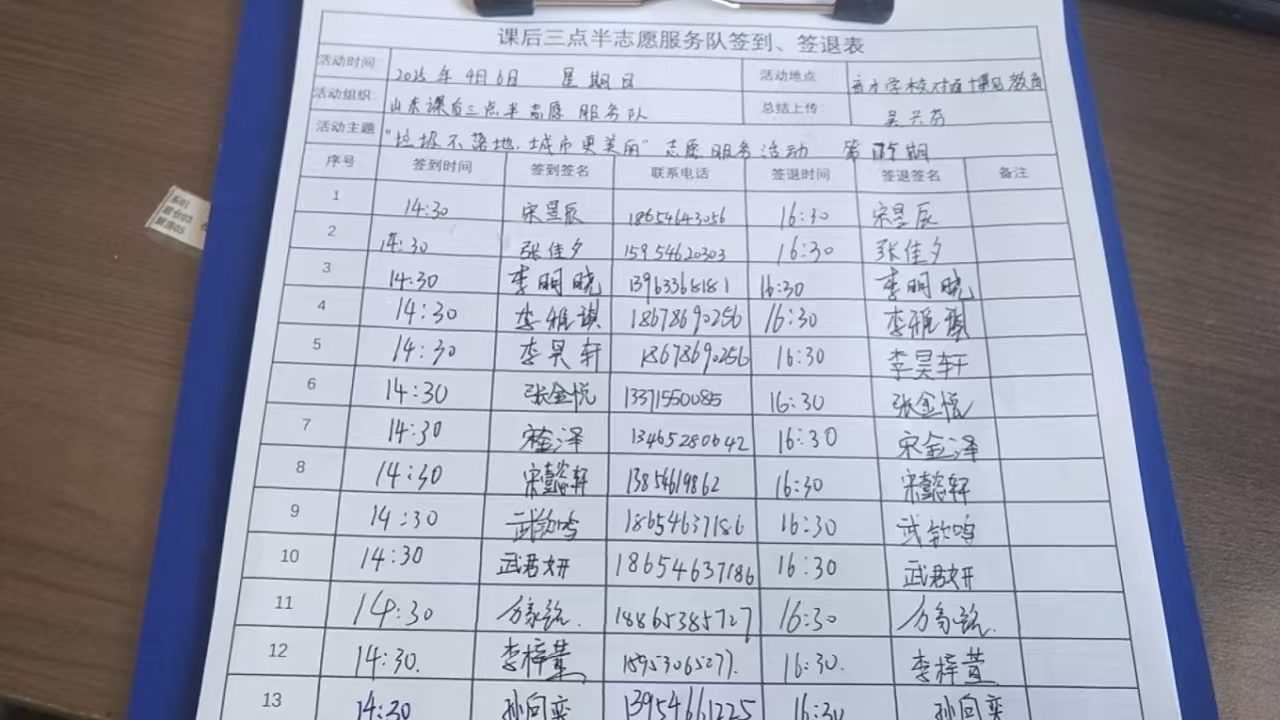 课后三点半志愿服务队签到、签退表
活动时间 2025年4月6日 星期日 活动地点 育才学校对面博冠教育
活动组织 山东课后三点半志愿服务队 总结上传
活动主题 "垃圾不落地,城市更美丽"志愿服务活动 第 期
序号 签到时间 签到签名 联系电话 签退时间 签退签名 备注
1 14:30 宋昱辰 18654643056 16:30 宋昱辰
2 14:30 张佳夕 15954620303 16:30 张佳夕
3 14:30 李明晓 13963368181 16:30 李明晓
4 14:30 李雅琪 18678690256 16:30 李雅琪
5 14:30 李昊轩 18678690256 16:30 李昊轩
6 14:30 张金悦 13371550085 16:30 张金悦
7 14:30 宋金泽 13465280642 16:30 宋金泽
8 14:30 宋懿轩 13854619862 16:30 宋懿轩
9 14:30 武钦鸣 18654637186 16:30 武钦鸣
10 14:30 武君妍 18654637186 16:30 武君妍
11 14:30 18865385727 16:30
12 14:30. 李梓萱 18953065277. 16:30. 李梓萱
13 14:30 孙向奕 13954661225 16:30 孙向奕